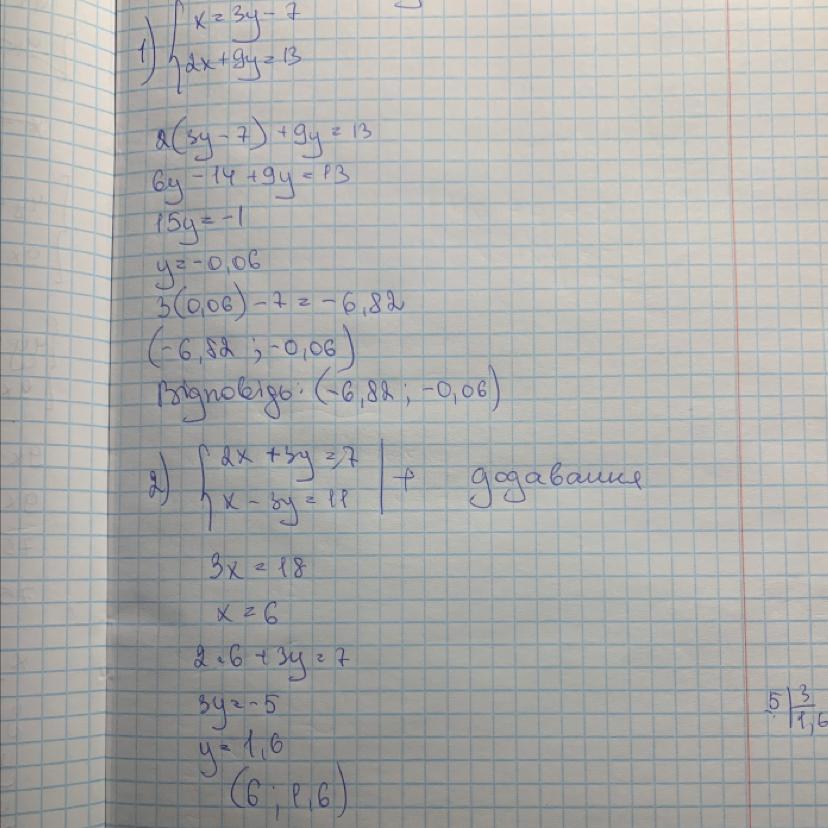 1) { x = 3y - 7
2x + 9y = 13
2(3y - 7) + 9y = 13
6y - 14 + 9y = 13
15y = -1
y = -0,06
3(0,06) - 7 = -6,82
(-6,82 ; -0,06)
Відповідь: (-6,82 ; -0,06)
2) { 2x + 3y = 7
x - 3y = 11 | + додавання
3x = 18
x = 6
2 · 6 + 3y = 7
3y = -5
y = 1,6
(6 ; 1,6)
5 | 3
1,6